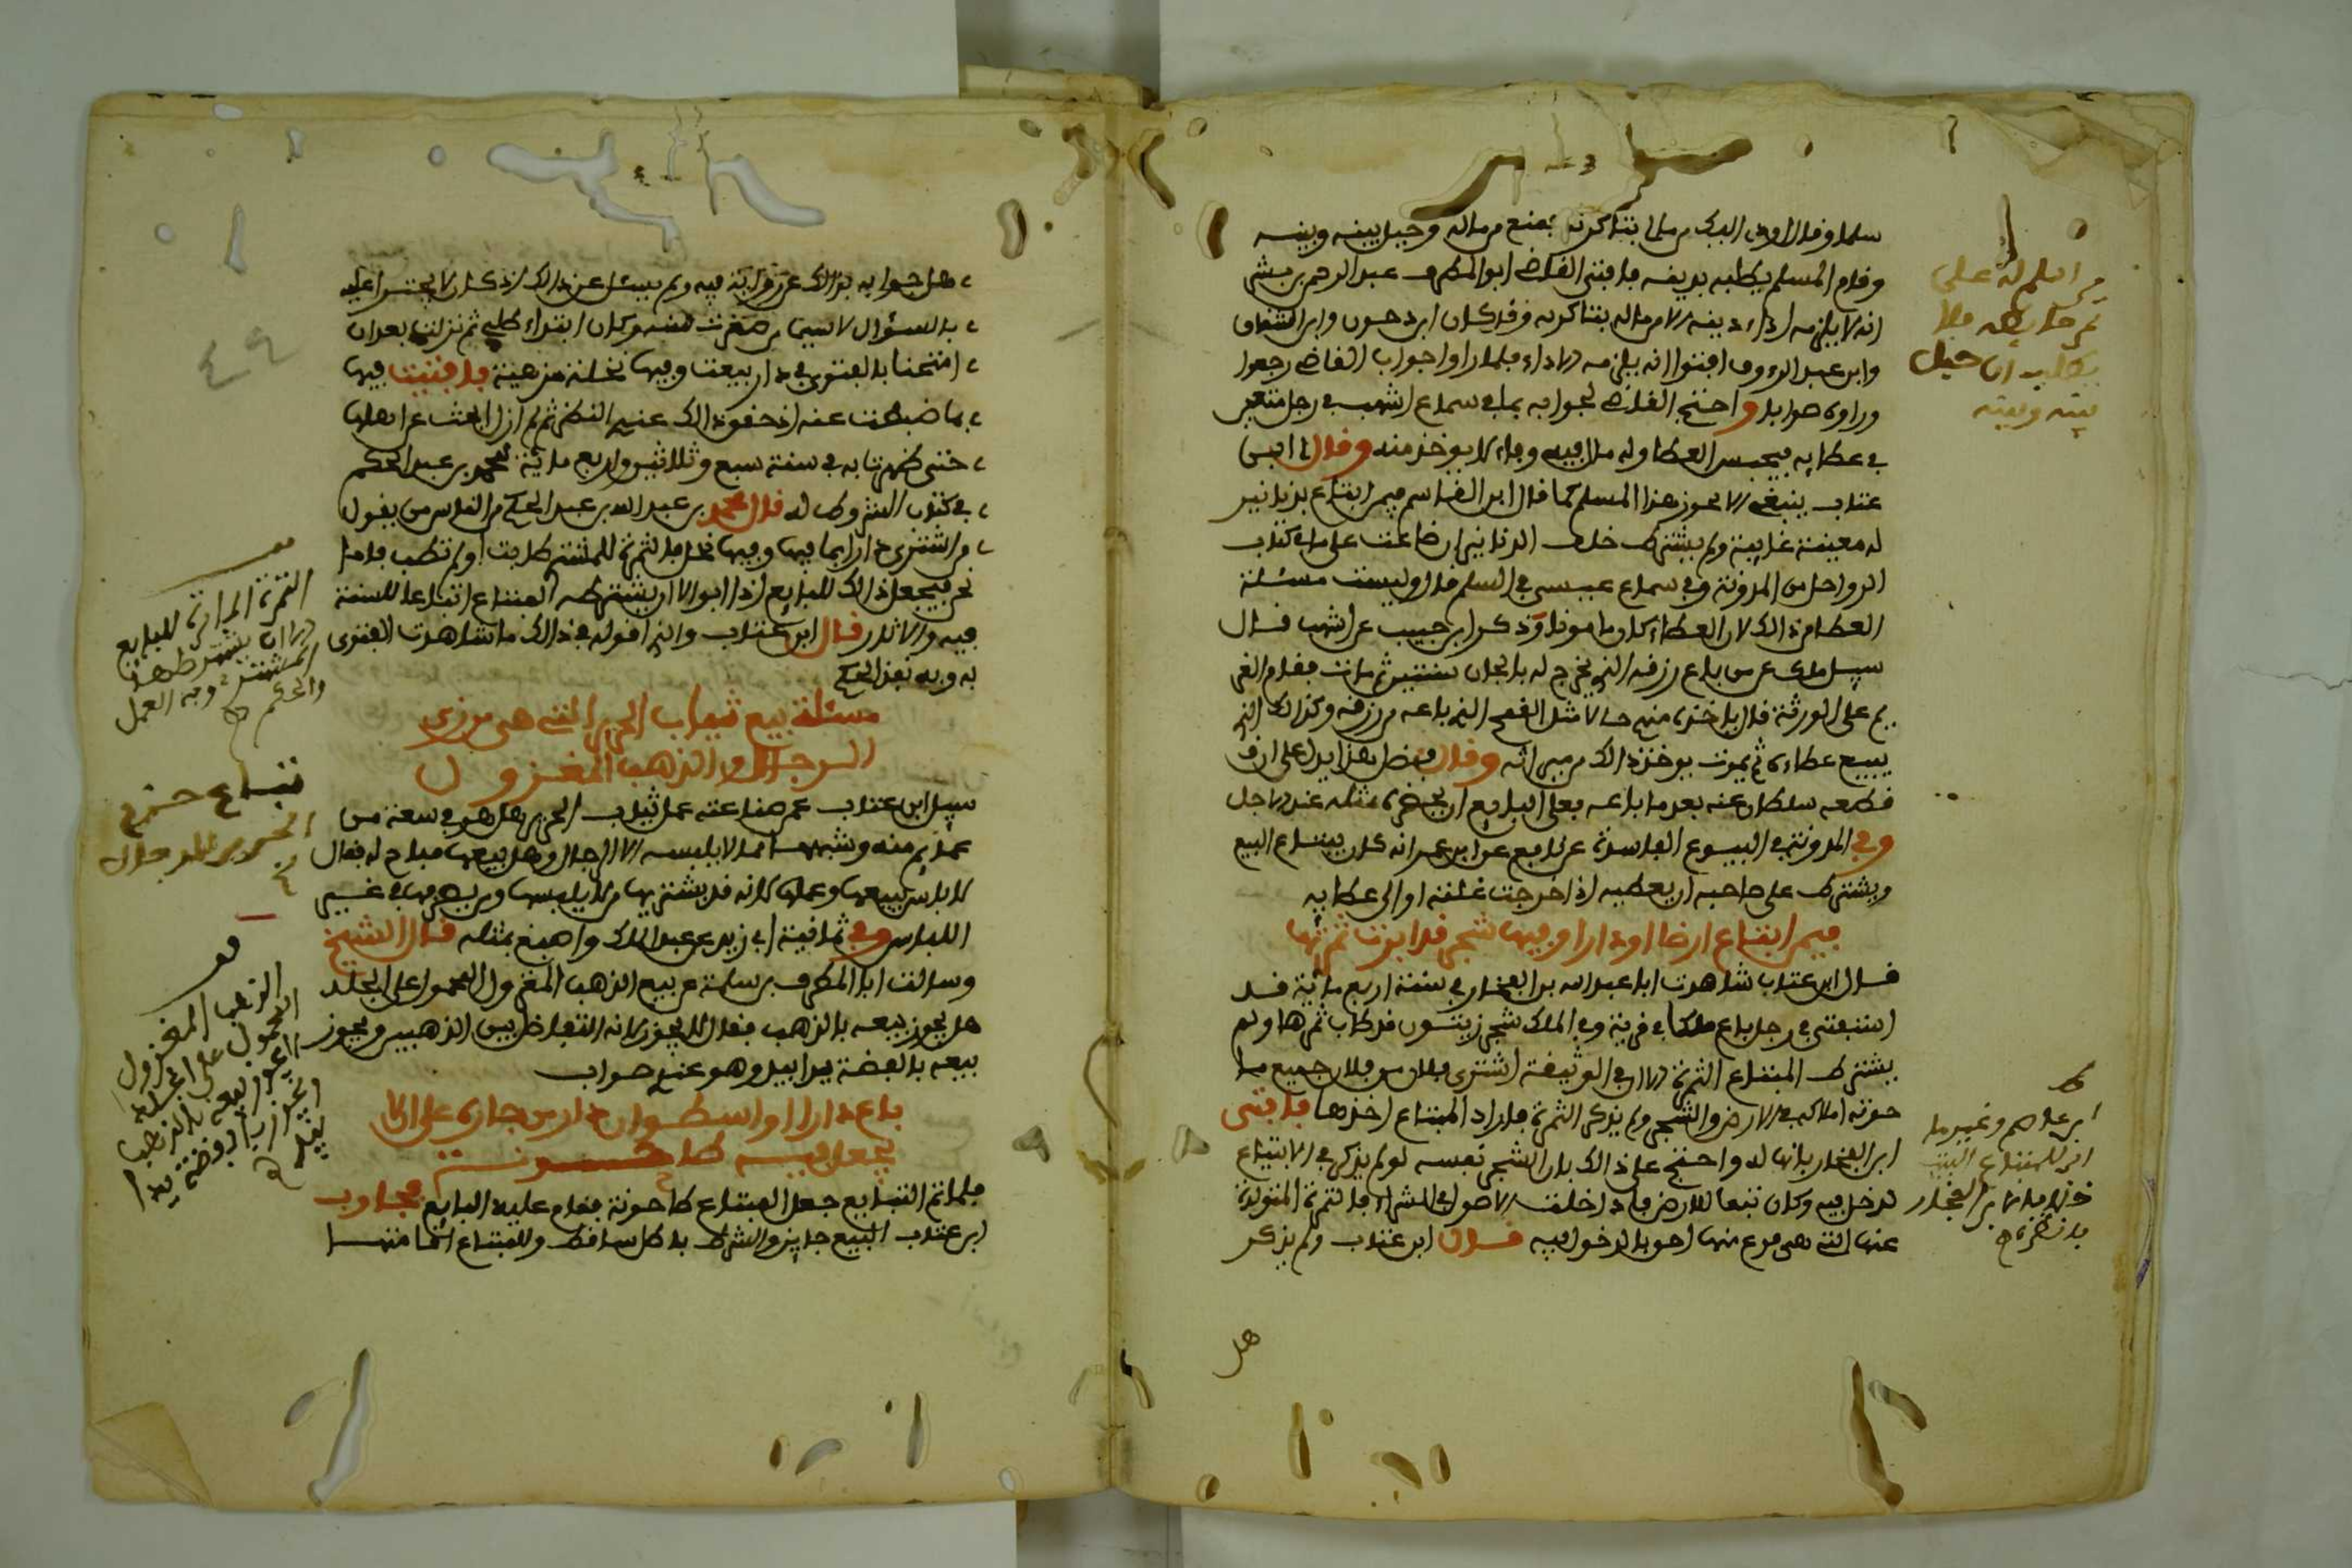 سلما وقال اوصى اليك من مالى بتاكرنه يمنع من ماله وحيل بينه وبينه
وقام المسلم يطلبه بدينه فافتى القاضي ابو المطرف عبد الرحمن بن بشر
انه لا يلزمه اداء دينه الا من ماله بتاكرنه وقد كان ابن دحون وابن الشقاق
وابن عبد الرءوف افتوا انه يلزمه الاداء فلما راوا جواب القاضي رجعوا
وراوه صوابا واحتج القاضي لجوابه بما في سماع اشهب في رجل
في عطايه فيحبس العطا وله مال فيه وفاء لا يوخذ منه وقال لي ابن
عتاب ينبغي الا يجوز هذا المسلم كما قال ابن القاسم فيمن ابتاع بدنانير
له معينة غايبة ولم يشترط خلف الدنانير ان ضاعت على ما في كتاب
الرواحل من المدونة وفي سماع عيسى في السلم قال وليست مسئلة
العطا من ذالك لان العطاء كان مامونا وذكر ابن حبيب عن اشهب قال
سيل ملك عن من باع رزقه الذي يخرج له بالجار سنتين ثم مات فقام الغر
يم على الورثة قال ياخذه منهم حالا مثل القمح الذي باعه من رزقه وكذالك الذي
يبيع عطاءه ثم يموت يوخذ ذالك من ميراثه وقال فضل هذا يدل على ان
قطعه سلطان عنه بعد ما باعه فعلى البايع ان يحضره مثله عند الاجل
وفي المدونة في البيوع الفاسدة عن نافع عن ابن عمر انه كان يبتاع البيع
ويشترط على صاحبه ان يعطيه اذا خرجت غلته او الى عطايه
فيمن ابتاع ارضا او دارا وفيها شجر قد ابرت ثمرتها
قال ابن عتاب شاهدت ابا عبد الله بن الفخار في سنة اربع ماية قد
استفتي في رجل باع ملكا في قرية وفي الملك شجر زيتون قد طاب ثمرها ولم
يشترط المبتاع الثمرة الا ان في الوثيقة اشترى فلان من فلان جميع ما
حوته املاكه في الارض والشجر ولم يذكر الثمرة فاراد المبتاع اخذها فافتى
ابن الفخار بانها له واحتج على ذالك بان الشجر نفسه لو لم يذكر في الابتياع
لدخل فيه وكان تبعا للارض فاذا دخلت الاصول في الشراء فالثمرة المتولدة
عنها التي هي فرع منها احق بالدخول فيه قال ابن عتاب ولم يذكر
هل
من اسلم له على
بينه وبينه
ابن الفخار
هل جوابه بذالك عن رواية فيه ولم يسئل عن ذالك اذ كان لا يجترا عليه
بالسؤال لا سيما من صغرت سنه وكان ابتداء طلبي ثم نزلت بعد ان
امتحنا بالفتوى في دار بيعت وفيها نخلة مزهية فافتيت فيها
بما ضبطت عنه اذ حقق ذالك عندي النظر ثم لم ازل ابحث عن اهلها
حتى ظهرت به في سنة سبع وثلاثين واربع ماية لمحمد بن عبد الحكم
في كتاب الشروط له قال محمد بن عبد الله بن عبد الحكم من الناس من يقول
من اشترى دارا بما فيها وفيها نخل فالثمرة للمشتري طابت او لم تطب فاما
نحن فيجعل ذالك للبايع اذا ابر الا ان يشترطه المبتاع اتباعا للسنة
فيه والاثار قال ابن عتاب والذي اقوله في ذالك ما شاهدت الفتوى
به وبه نفذ الحكم
مسئلة بيع ثياب الحرير التي هي من زي
الرجال والذهب المغزول
سيل ابن عتاب عمن صناعته عمل ثياب الحرير هل هو في سعة من
عمايم منه وشبهها مما لا يلبسه الا الرجال وهل بيعها مباح له فقال
لا باس ببيعها وعملها لانه قد يشتريها من لا يلبسها ومن يصرفها في غير
اللباس وفي ثمانية ابي زيد عن عبد الملك واصبغ بمثله قال الشيخ
وسالت ابا المطرف بن سلمة عن بيع الذهب المغزول المحمول على الجلد
هل يجوز بيعه بالذهب فقال لا يجوز لانه التفاضل بين الذهبين ويجوز
بيعه بالفضة يدا بيد وهو عندي صواب
باع دارا او اسطوان دار من جاره على الا
يجعل فيه طاحونة
فلما تم التبايع جعل المبتاع طاحونة فقام عليه البايع فجاوب
ابن عتاب البيع جايز والشرط باطل ساقط وللمبتاع
الثمرة المابورة للبايع
الا ان يشترطها
المشتري وبه العمل
والحكم
الحرير للرجال
الذهب المغزول
المحمول على الجلد
لا يجوز بيعه بالذهب
ويجوز بالفضة يدا
بيد
٤٩